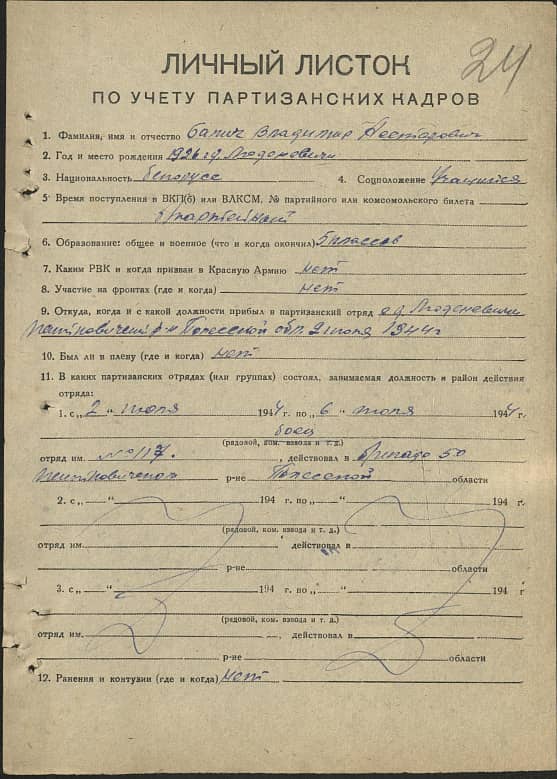 24
ЛИЧНЫЙ ЛИСТОК
ПО УЧЕТУ ПАРТИЗАНСКИХ КАДРОВ
1. Фамилия, имя и отчество Бапич Владимир Несторович
2. Год и место рождения 1926 г д. Люденевичи
3. Национальность белорусс 4. Соцположение Учащийся
5 Время поступления в ВКП(б) или ВЛКСМ, № партийного или комсомольского билета
б/партейный
6. Образование: общее и военное (что и когда окончил) 5 классов
7. Каким РВК и когда призван в Красную Армию нет
8. Участие на фронтах (где и когда) нет
9. Откуда, когда и с какой должности прибыл в партизанский отряд с д. Люденевичи
р-н Полесской обл. 2 июля 1944 г
10. Был ли в плену (где и когда) нет
11. В каких партизанских отрядах (или группах) состоял, занимаемая должность и район действия
отряда:
1. с „2“ июля 1944 г. по „6“ июля 1944 г.
боец
(рядовой, ком. взвода и т. д.)
отряд им. № 117. , действовал в бригаде 50
р-не Полесской области
2. с „ “ 194 г. по „ “ 194 г.
(рядовой, ком. взвода и т. д.)
отряд им. , действовал в
р-не области
3. с „ “ 194 г. по „ “ 194 г
(рядовой, ком. взвода и т. д.)
отряд им. , действовал в
р-не области
12. Ранения и контузии (где и когда) нет